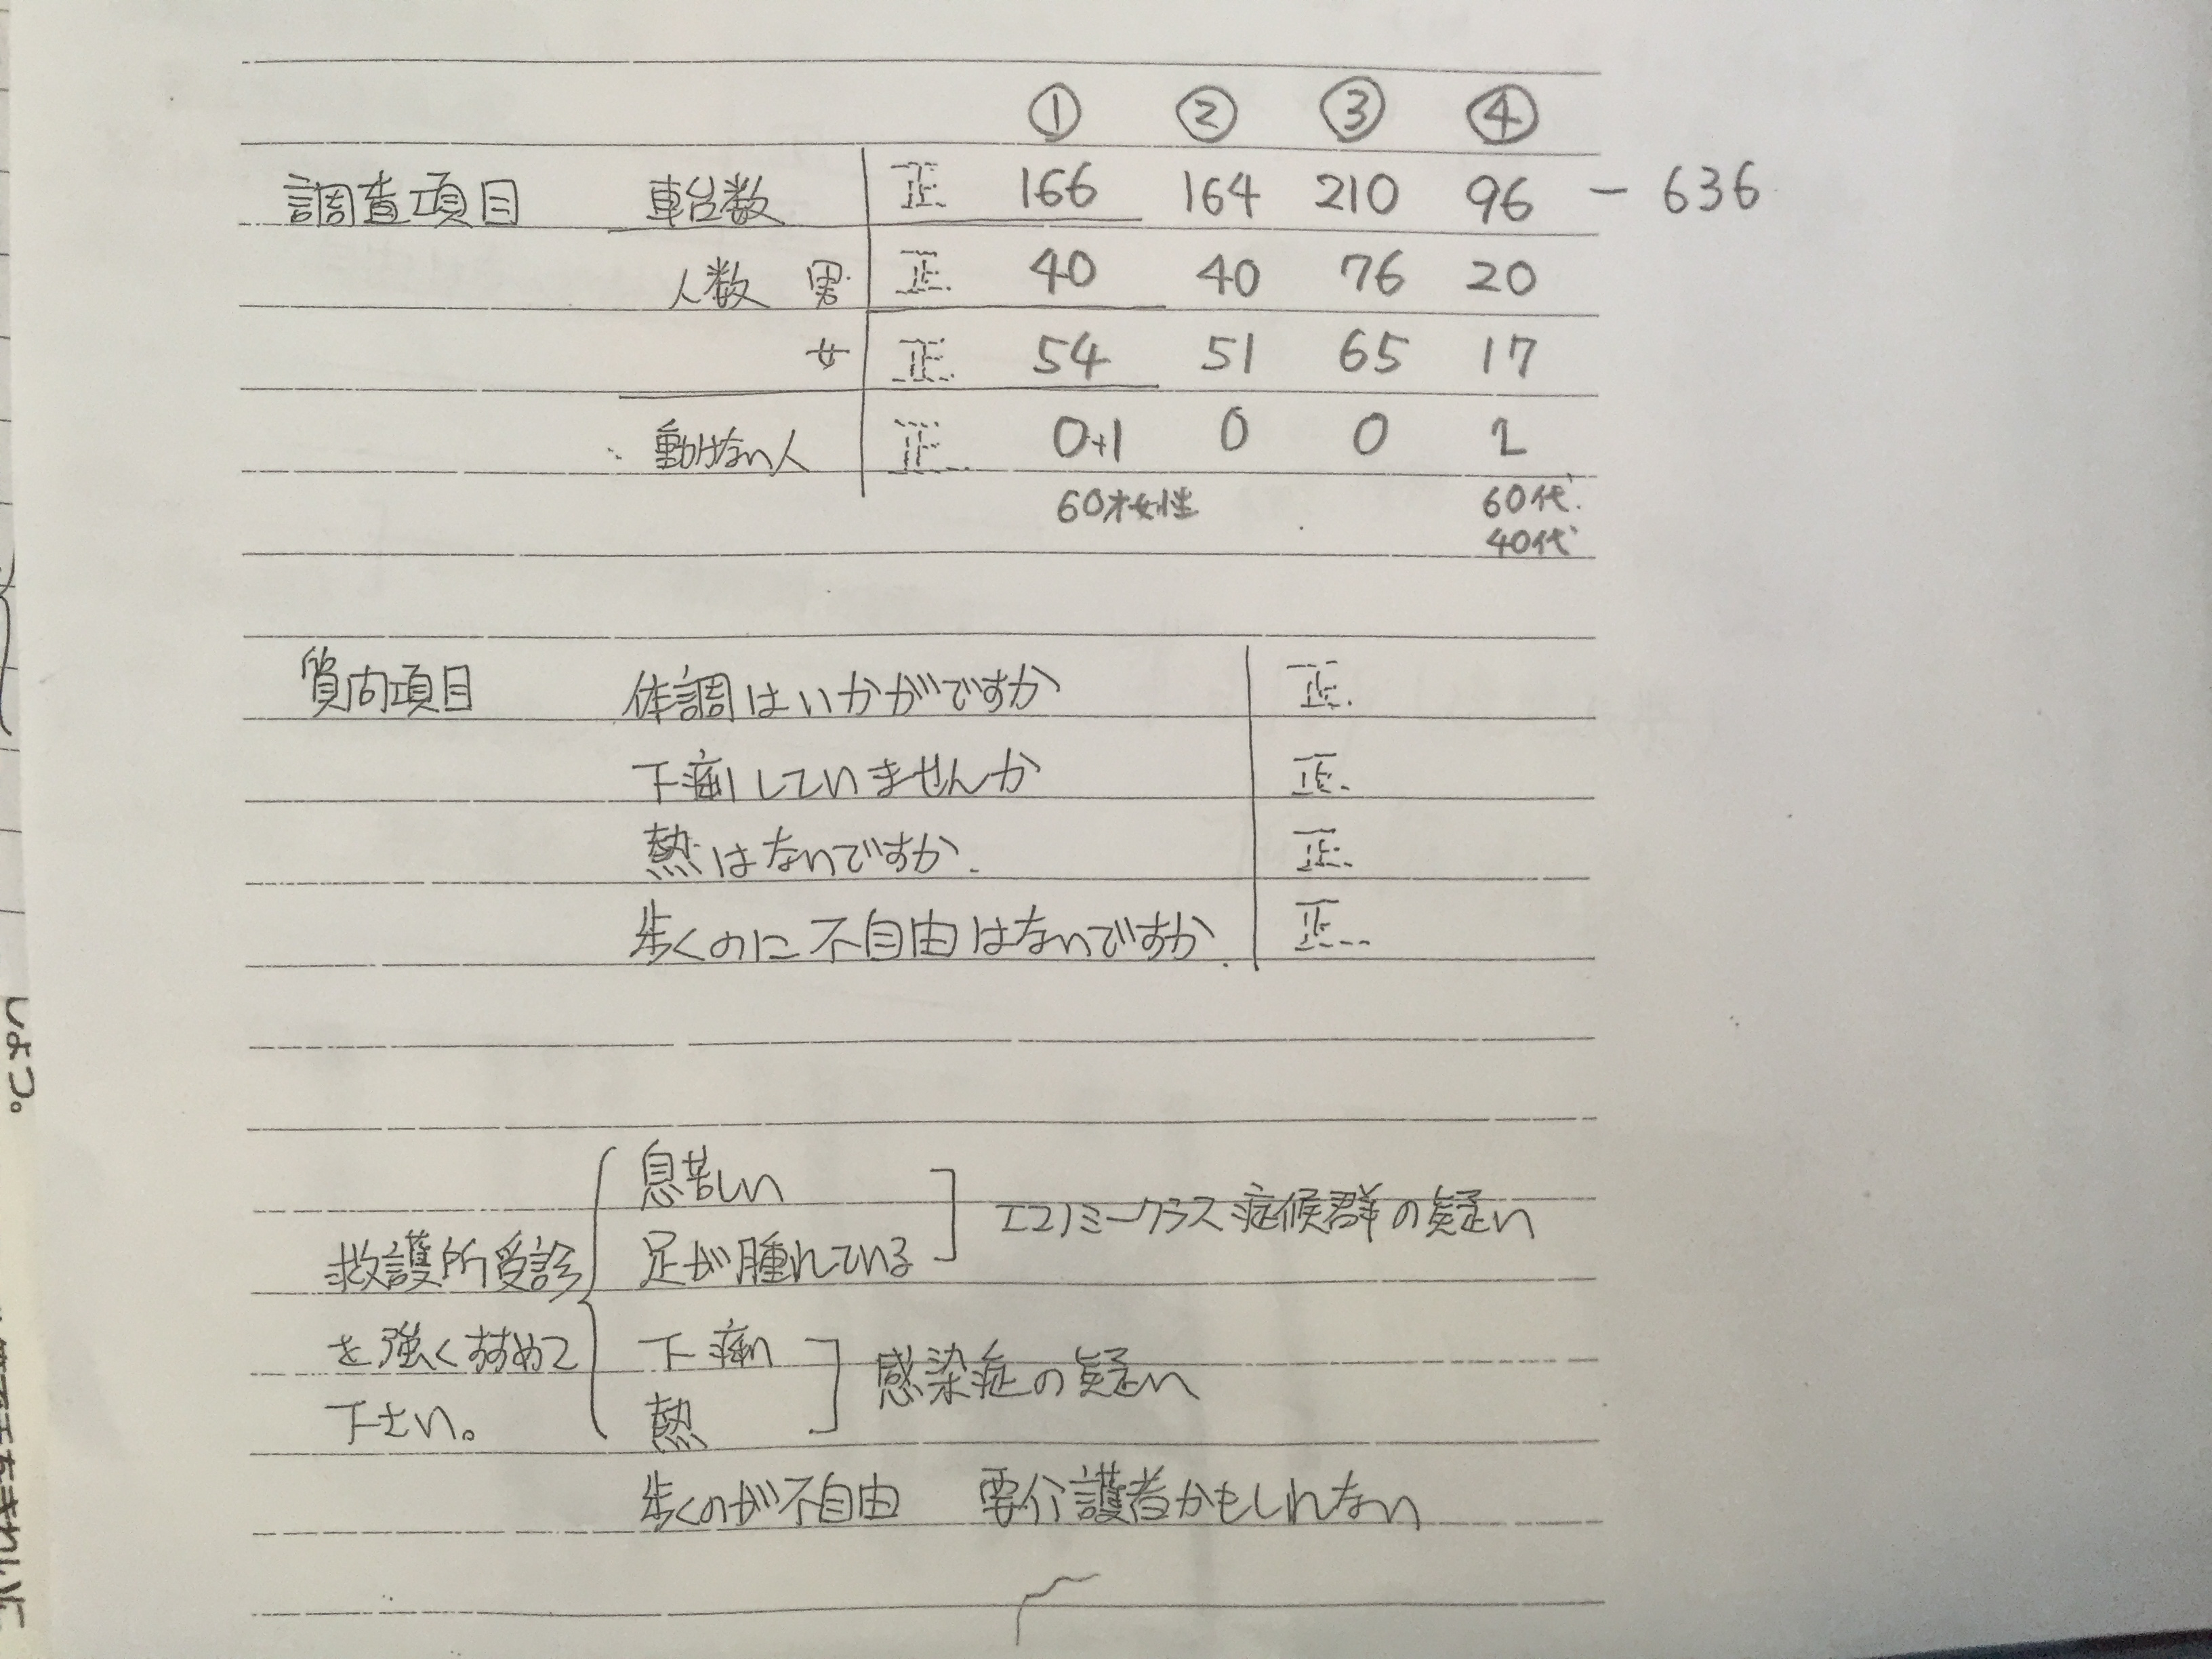 ① ② ③ ④
調査項目 車台数 正 166 164 210 96 - 636
人数 男 正 40 40 76 20
女 正 54 51 65 17
動けない人 正 0+1 0 0 2
60才女性 60代
40代
質問項目 体調はいかがですか 正
下痢していませんか 正
熱はないですか. 正
歩くのに不自由はないですか. 正
息苦しい
エコノミークラス症候群の疑い
救護所受診 足が腫れている
を強くすすめて 下痢
感染症の疑い
下さい。 熱
歩くのが不自由 要介護者かもしれない
しょう。